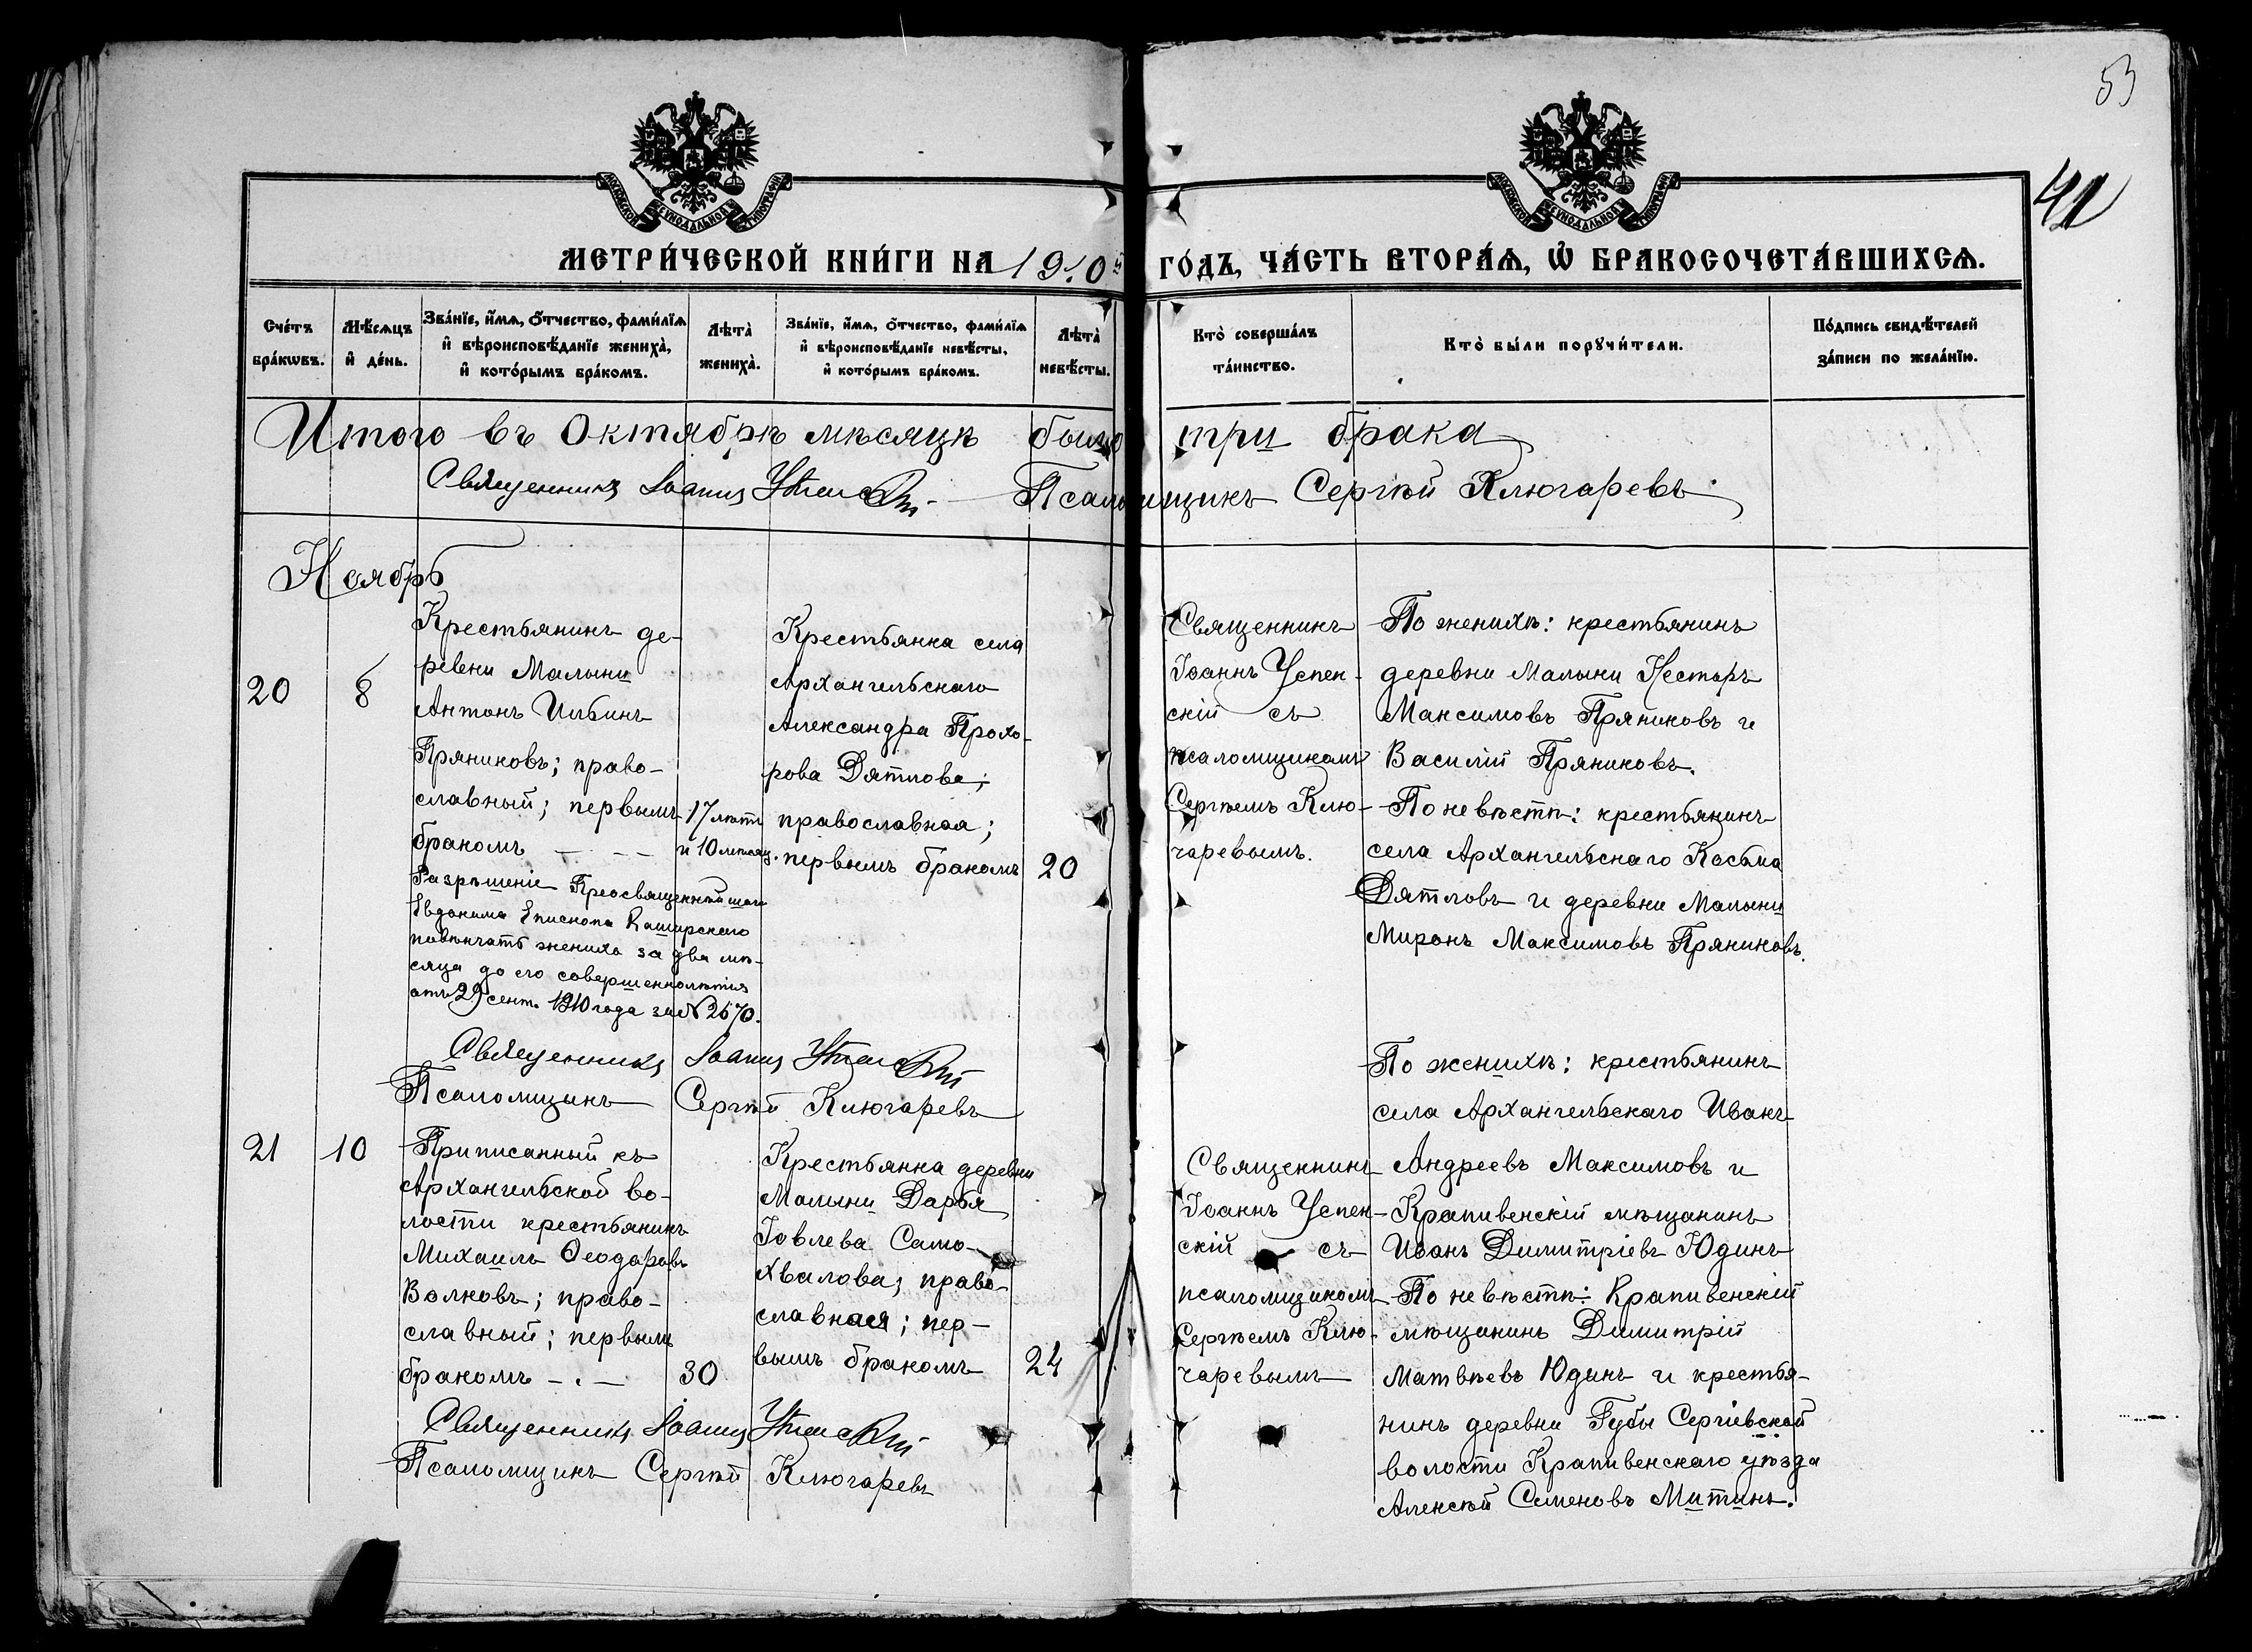 53
41
МОСКОВСКОЙ СѴНОДАЛЬНОЙ ТИПОГРАФІИ
МОСКОВСКОЙ СѴНОДАЛЬНОЙ ТИПОГРАФІИ
МЕТРИ́ЧЕСКОЙ КНИ́ГИ НА 1910й ГО́ДЪ, ЧА́СТЬ ВТОРА́Я, Ѡ БРАКОСОЧЕТА́ВШИХСЯ.
Сче́тъ бра́кѡвъ.
Мѣ́сяцъ и҆ де́нь.
Зва́нїе, и҆́мя, ѻ҆́тчество, фами́лїя
и҆ вѣроисповѣ́данїе жениха̀,
и҆ кото́рымъ бра́комъ.
Лѣта̀
жениха̀.
Зва́нїе, и҆́мя, ѻ҆́тчество, фами́лїя
и҆ вѣроисповѣ́данїе невѣ́сты,
и҆ кото́рымъ бра́комъ.
Лѣта̀
невѣ́сты.
Кто̀ соверша́лъ
та́инство.
Кто̀ бы́ли порꙋчи́тели.
По́дпись свидѣ́телей
за́писи по жела́нїю.
Итого въ Октябрѣ мѣсяцѣ было три брака
Священникъ Іоаннъ Успенскій Псаломщикъ Сергѣй Ключаревъ.
Ноябрь
20
8
Крестьянинъ де-
ревни Малыни
Антонъ Ильинъ
Пряниковъ; право-
славный; первымъ
бракомъ
Разрѣшеніе Преосвященнѣйшаго
Евдокима Епископа Каширскаго
повѣнчать жениха за два мѣ-
сяца до его совершеннолѣтія
отъ 29 сент. 1910 года за № 2670.
17 лѣтъ
и 10 мѣсяц.
Крестьянка села
Архангельскаго
Александра Прохо-
рова Дятлова;
православная;
первымъ бракомъ
20
Священникъ
Іоаннъ Успен-
скій съ
псаломщикомъ
Сергѣемъ Клю-
чаревымъ.
По женихѣ: крестьянинъ
деревни Малыни Несторъ
Максимовъ Пряниковъ и
Василій Пряниковъ.
По невѣстѣ: крестьянинъ
села Архангельскаго Косьма
Дятловъ и деревни Малыни
Миронъ Максимовъ Пряниковъ.
Священникъ Іоаннъ Успенскій
Псаломщикъ Сергѣй Ключаревъ
21
10
Приписанный къ
Архангельской во-
лости крестьянинъ
Михаилъ Ѳеодоровъ
Волковъ; право-
славный; первымъ
бракомъ
30
Крестьянка деревни
Малыни Дарья
Іовлева Само-
хвалова; право-
славная; пер-
вымъ бракомъ
24
Священникъ
Іоаннъ Успен-
скій съ
псаломщикомъ
Сергѣемъ Клю-
чаревымъ
По женихѣ: крестьянинъ
села Архангельскаго Иванъ
Андреевъ Максимовъ и
Крапивенскій мѣщанинъ
Иванъ Димитріевъ Юдинъ
По невѣстѣ: Крапивенскій
мѣщанинъ Димитрій
Матвѣевъ Юдинъ и крестья-
нинъ деревни Губы Сергіевской
волости Крапивенскаго уѣзда
Алексѣй Семеновъ Митинъ.
Священникъ Іоаннъ Успенскій
Псаломщикъ Сергѣй Ключаревъ